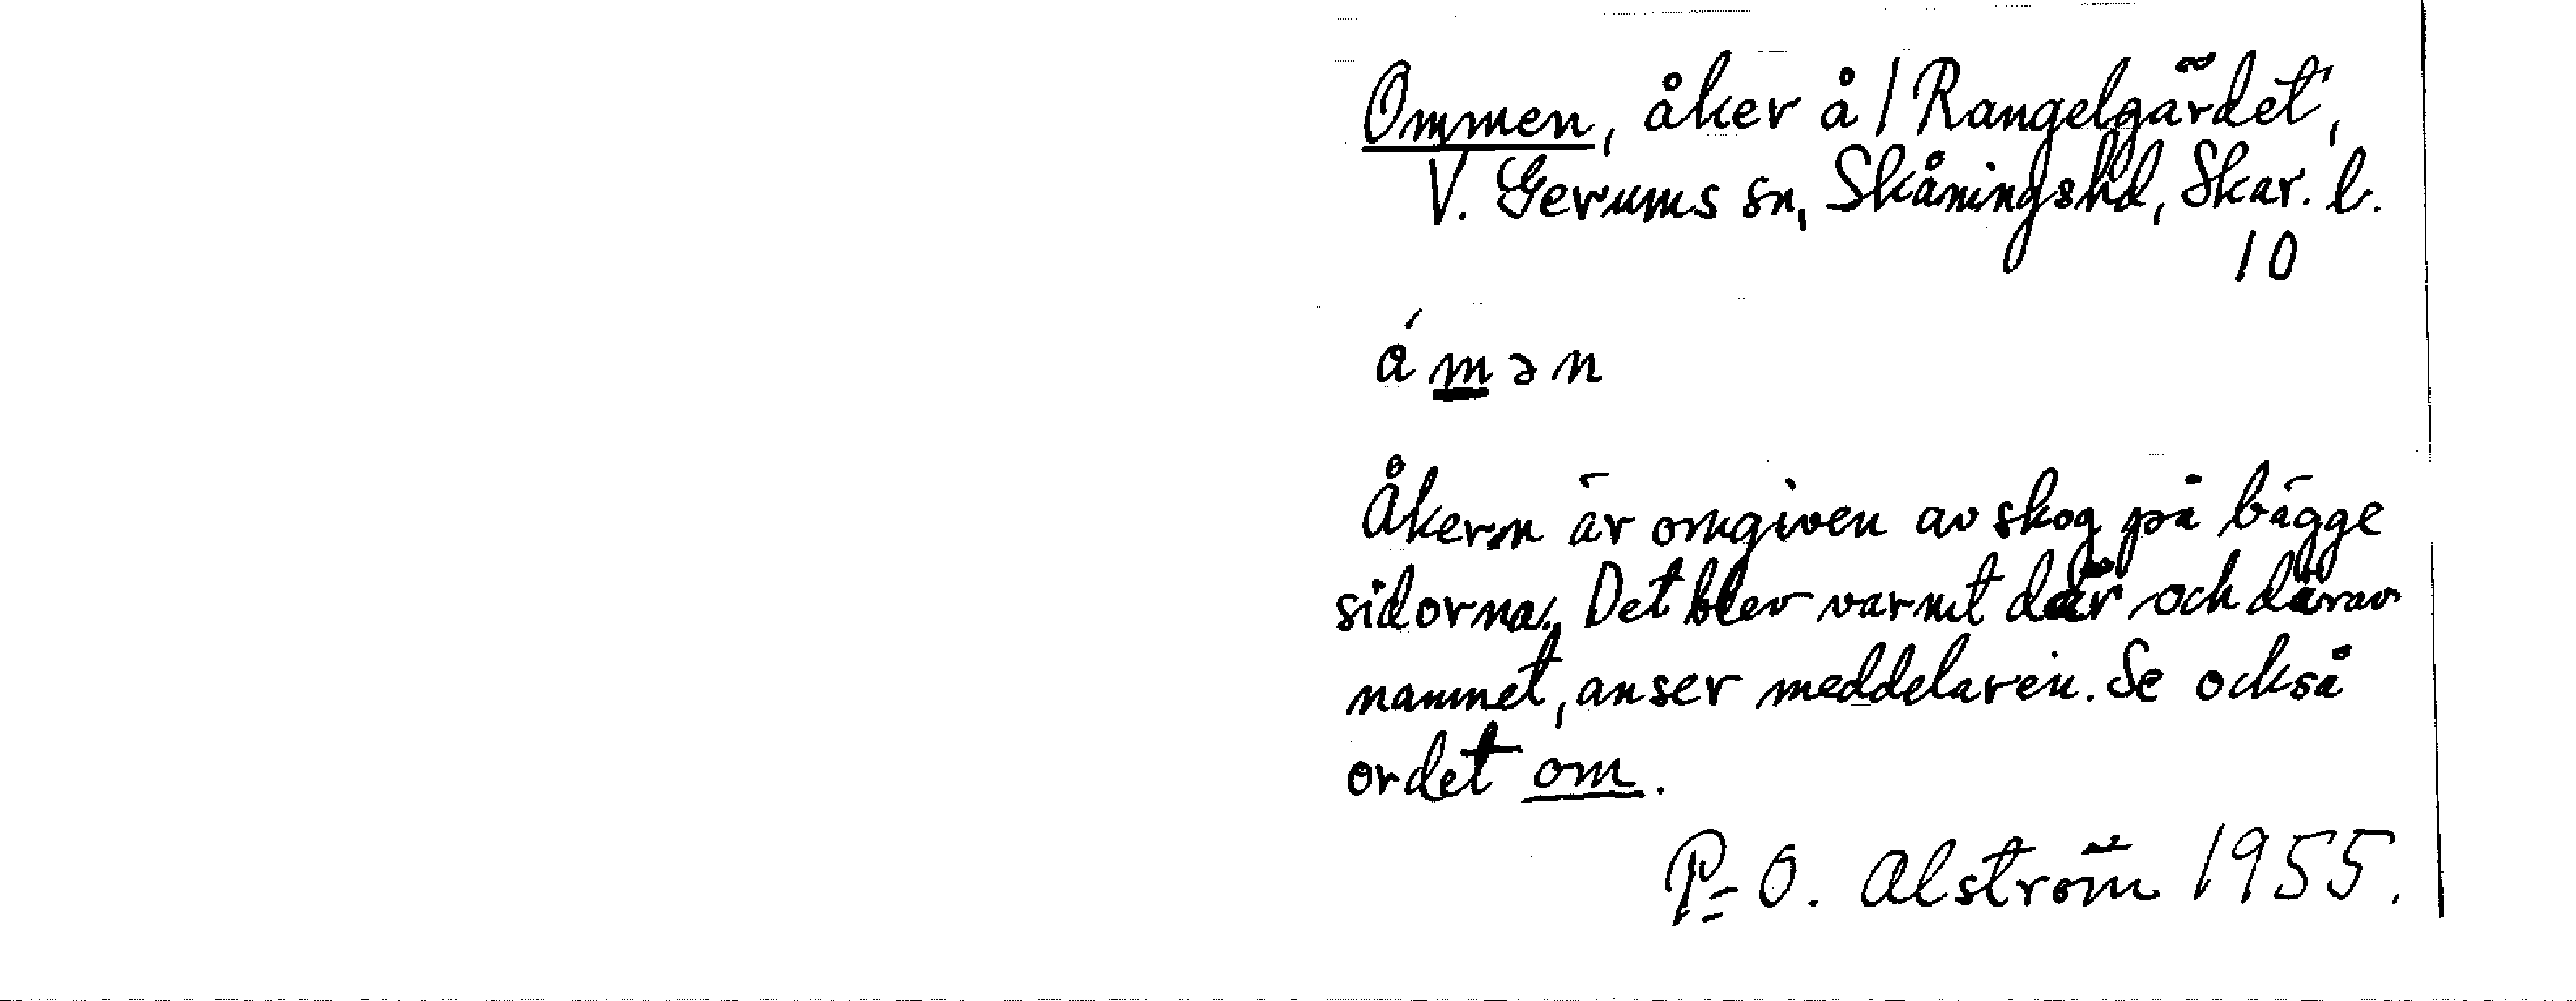 Ommen, åker å / Rangelgärdet,
V. Gerums sn, Skånings hd, Skar. l.
10
åmən
Åkern är omgiven av skog på bägge
sidorna. Det blev varmt där och därav
namnet, anser meddelaren. Se också
ordet om.
P-O. Alström 1955.